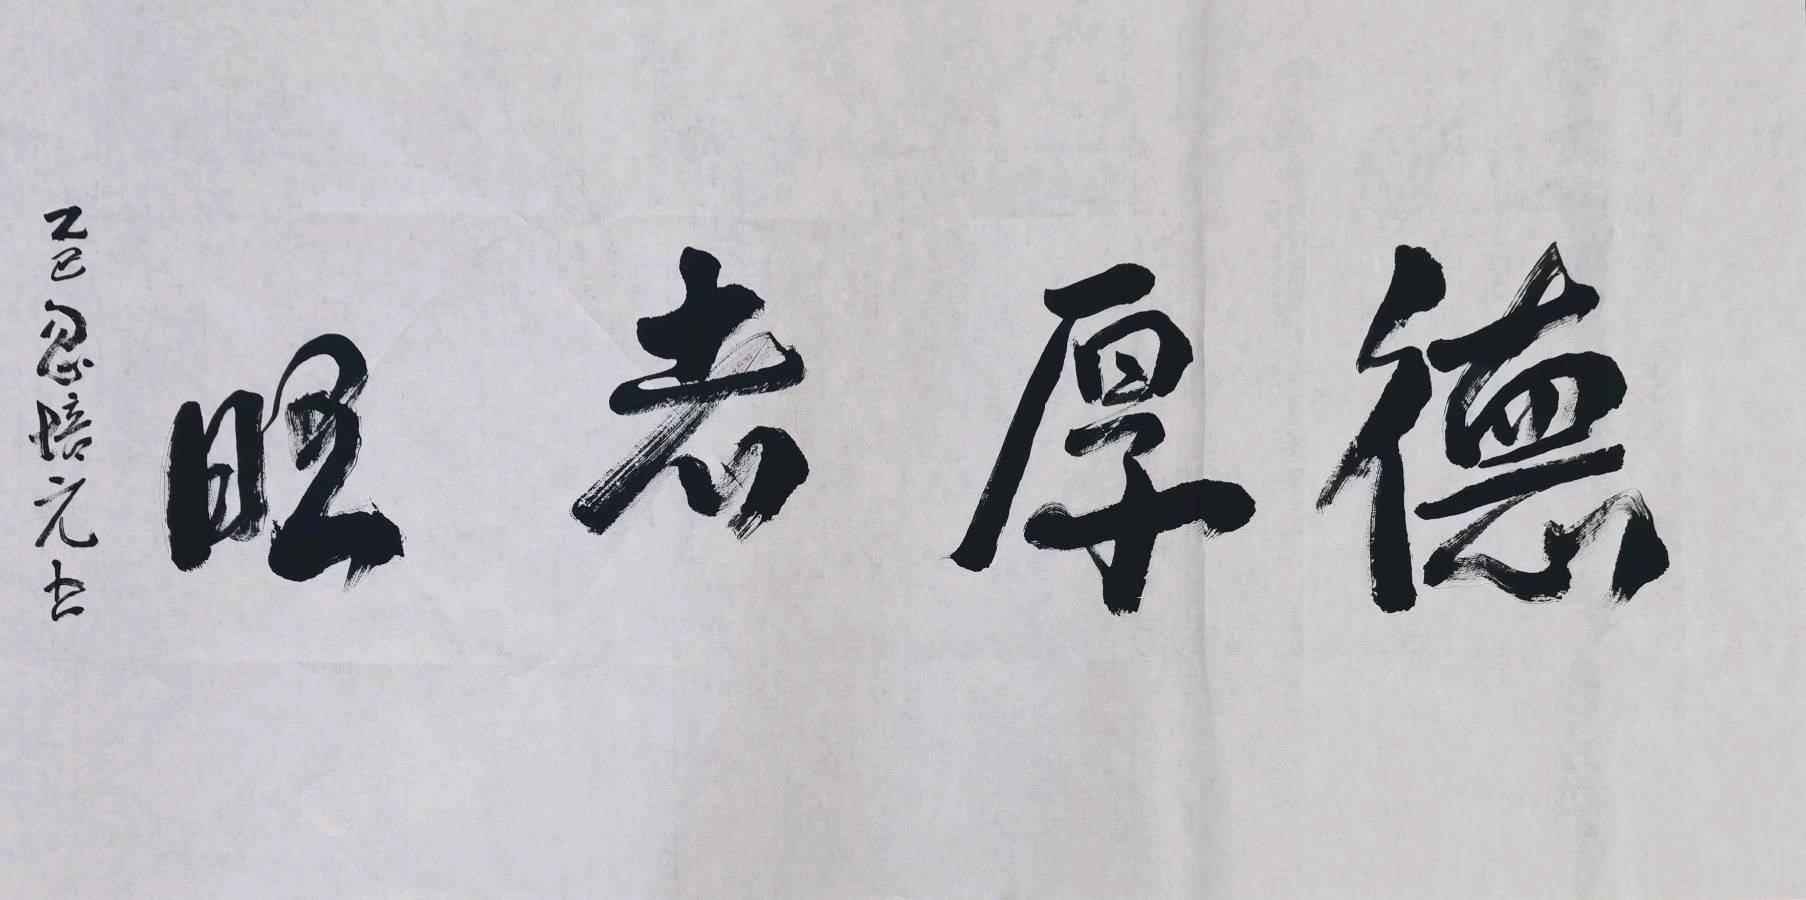 德厚者旺
乙巳忽培元书